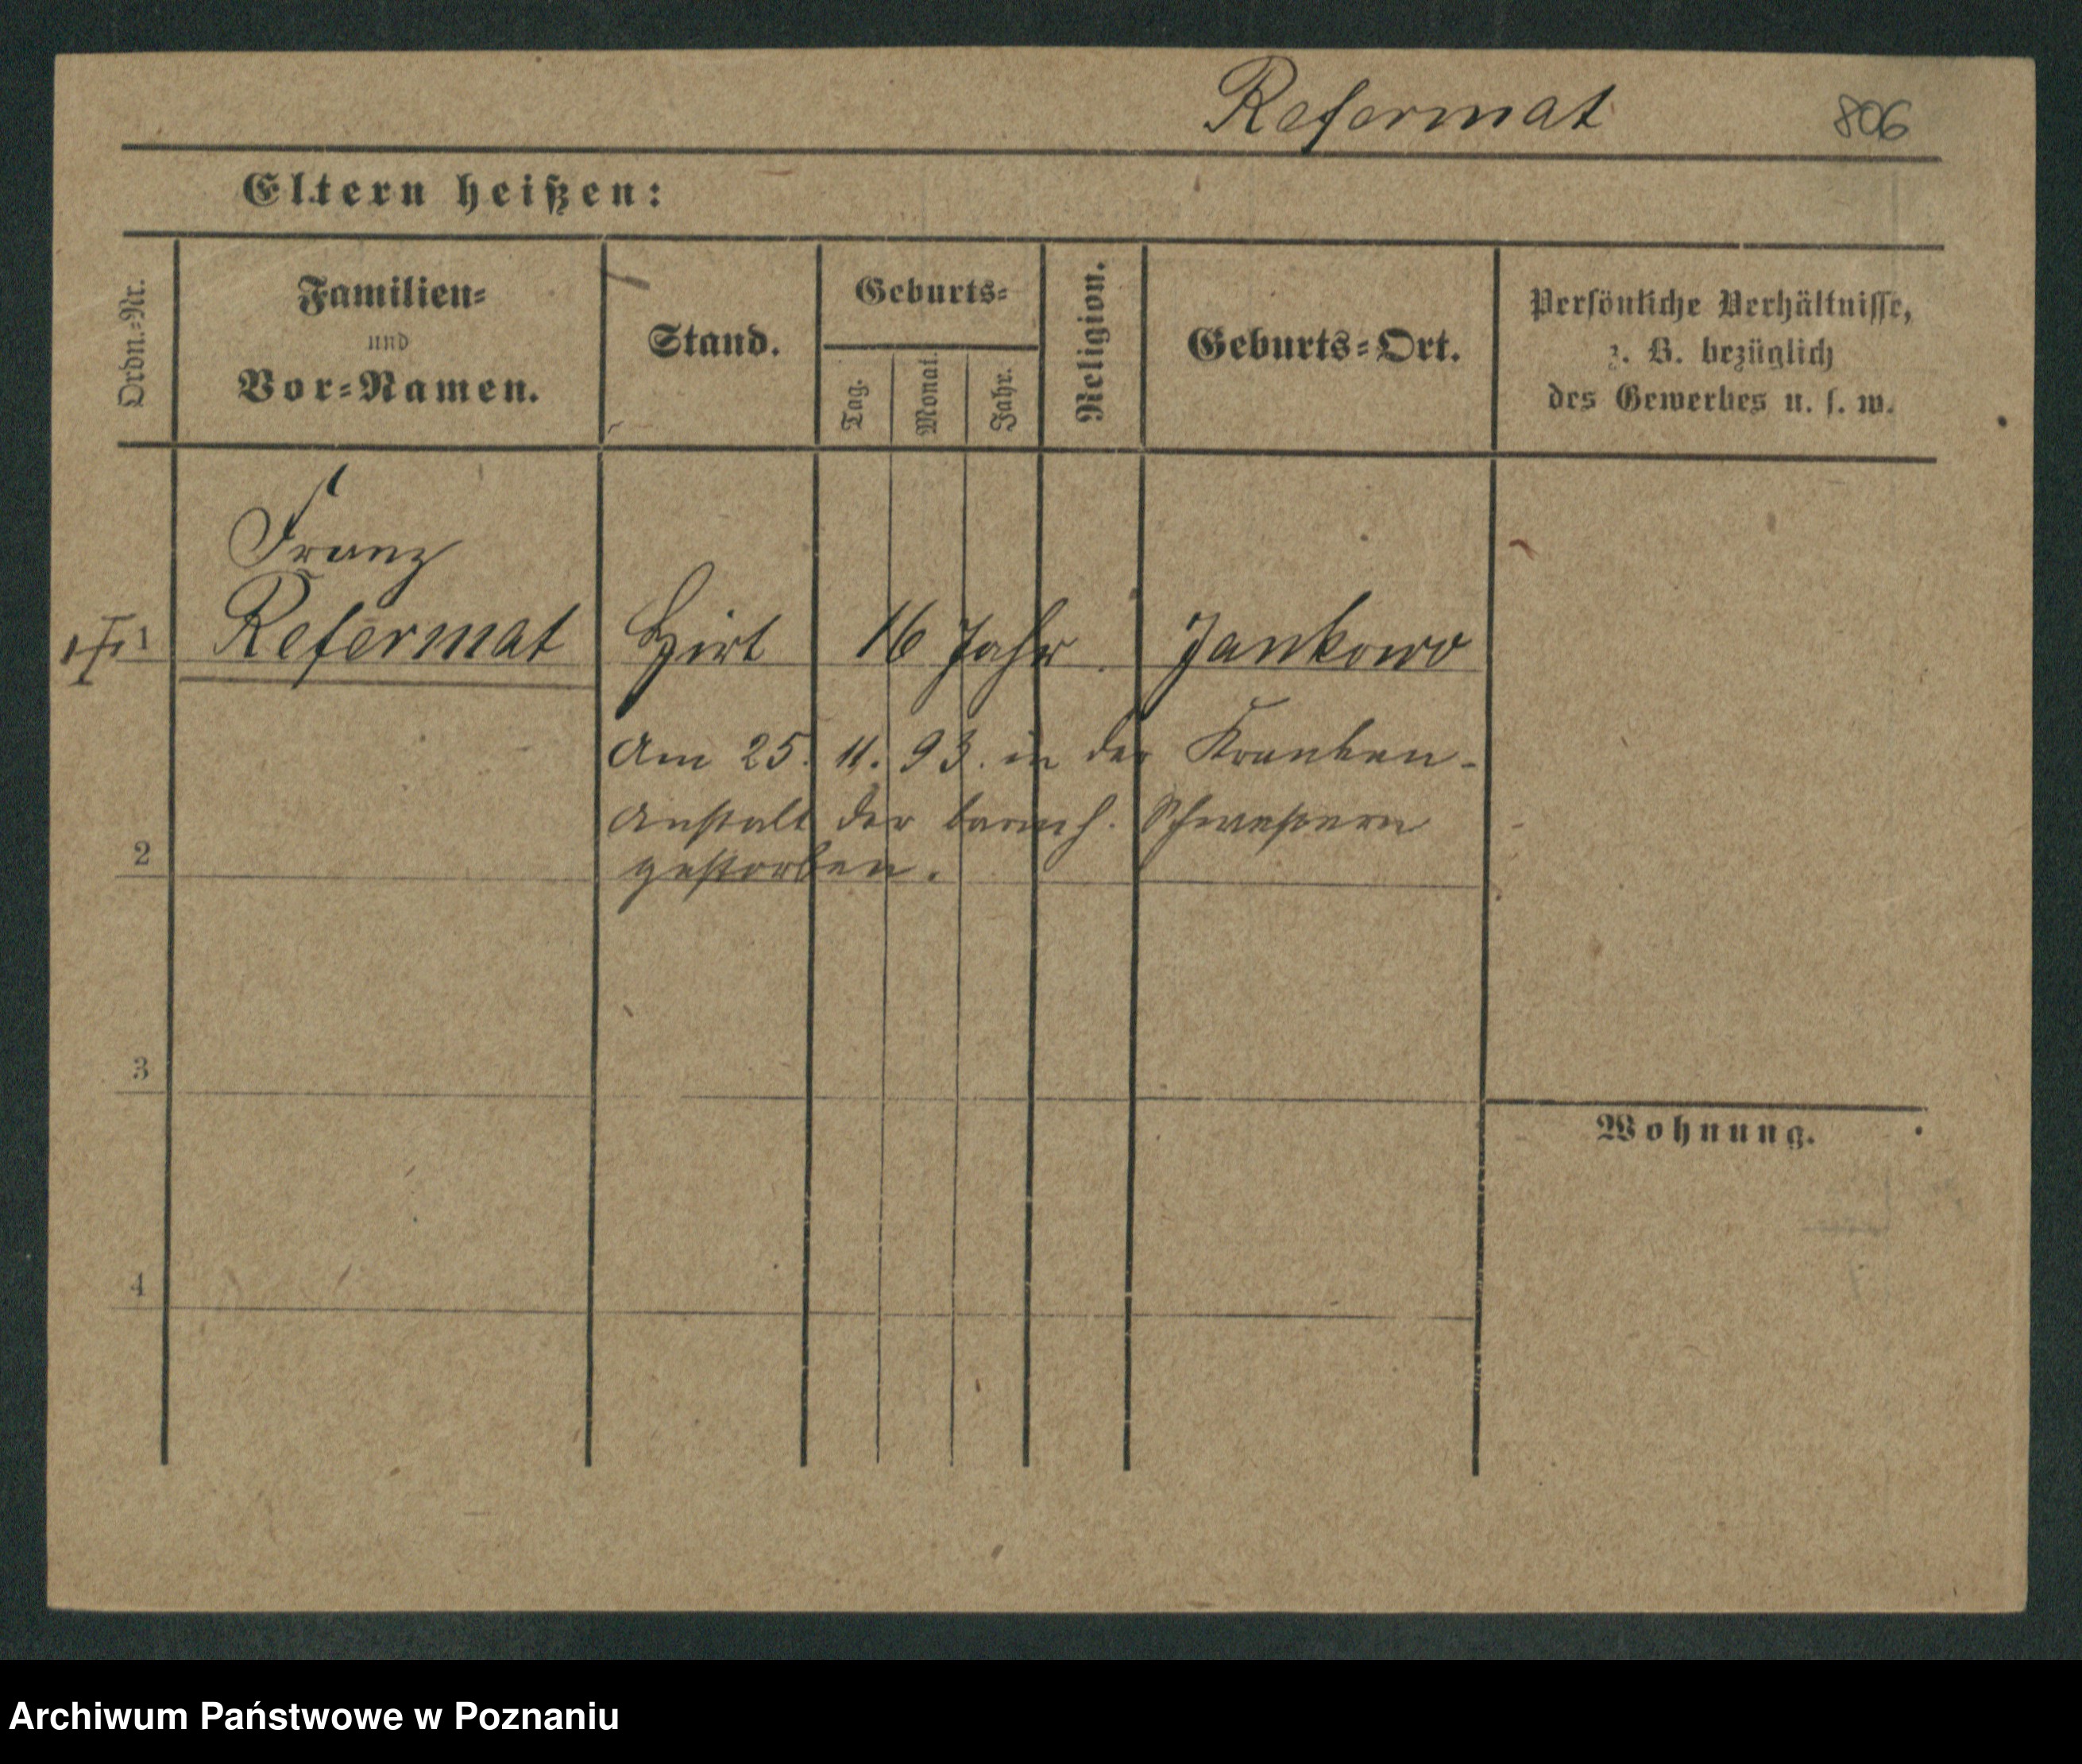 Refermat
806
Eltern heißen:
Ordn.-Nr.
Familien-
und
Vor-Namen.
Stand.
Geburts-
Tag.
Monat.
Jahr.
Religion.
Geburts-Ort.
Persönliche Verhältnisse,
z. B. bezüglich
des Gewerbes u. s. w.
Franz
1 Refermat Hirt 16 Jahr Jankowo
Am 25. 11. 93. in der Kranken-
Anstalt der barmh. Schwestern
gestorben.
2
3
Wohnung.
4
Archiwum Państwowe w Poznaniu